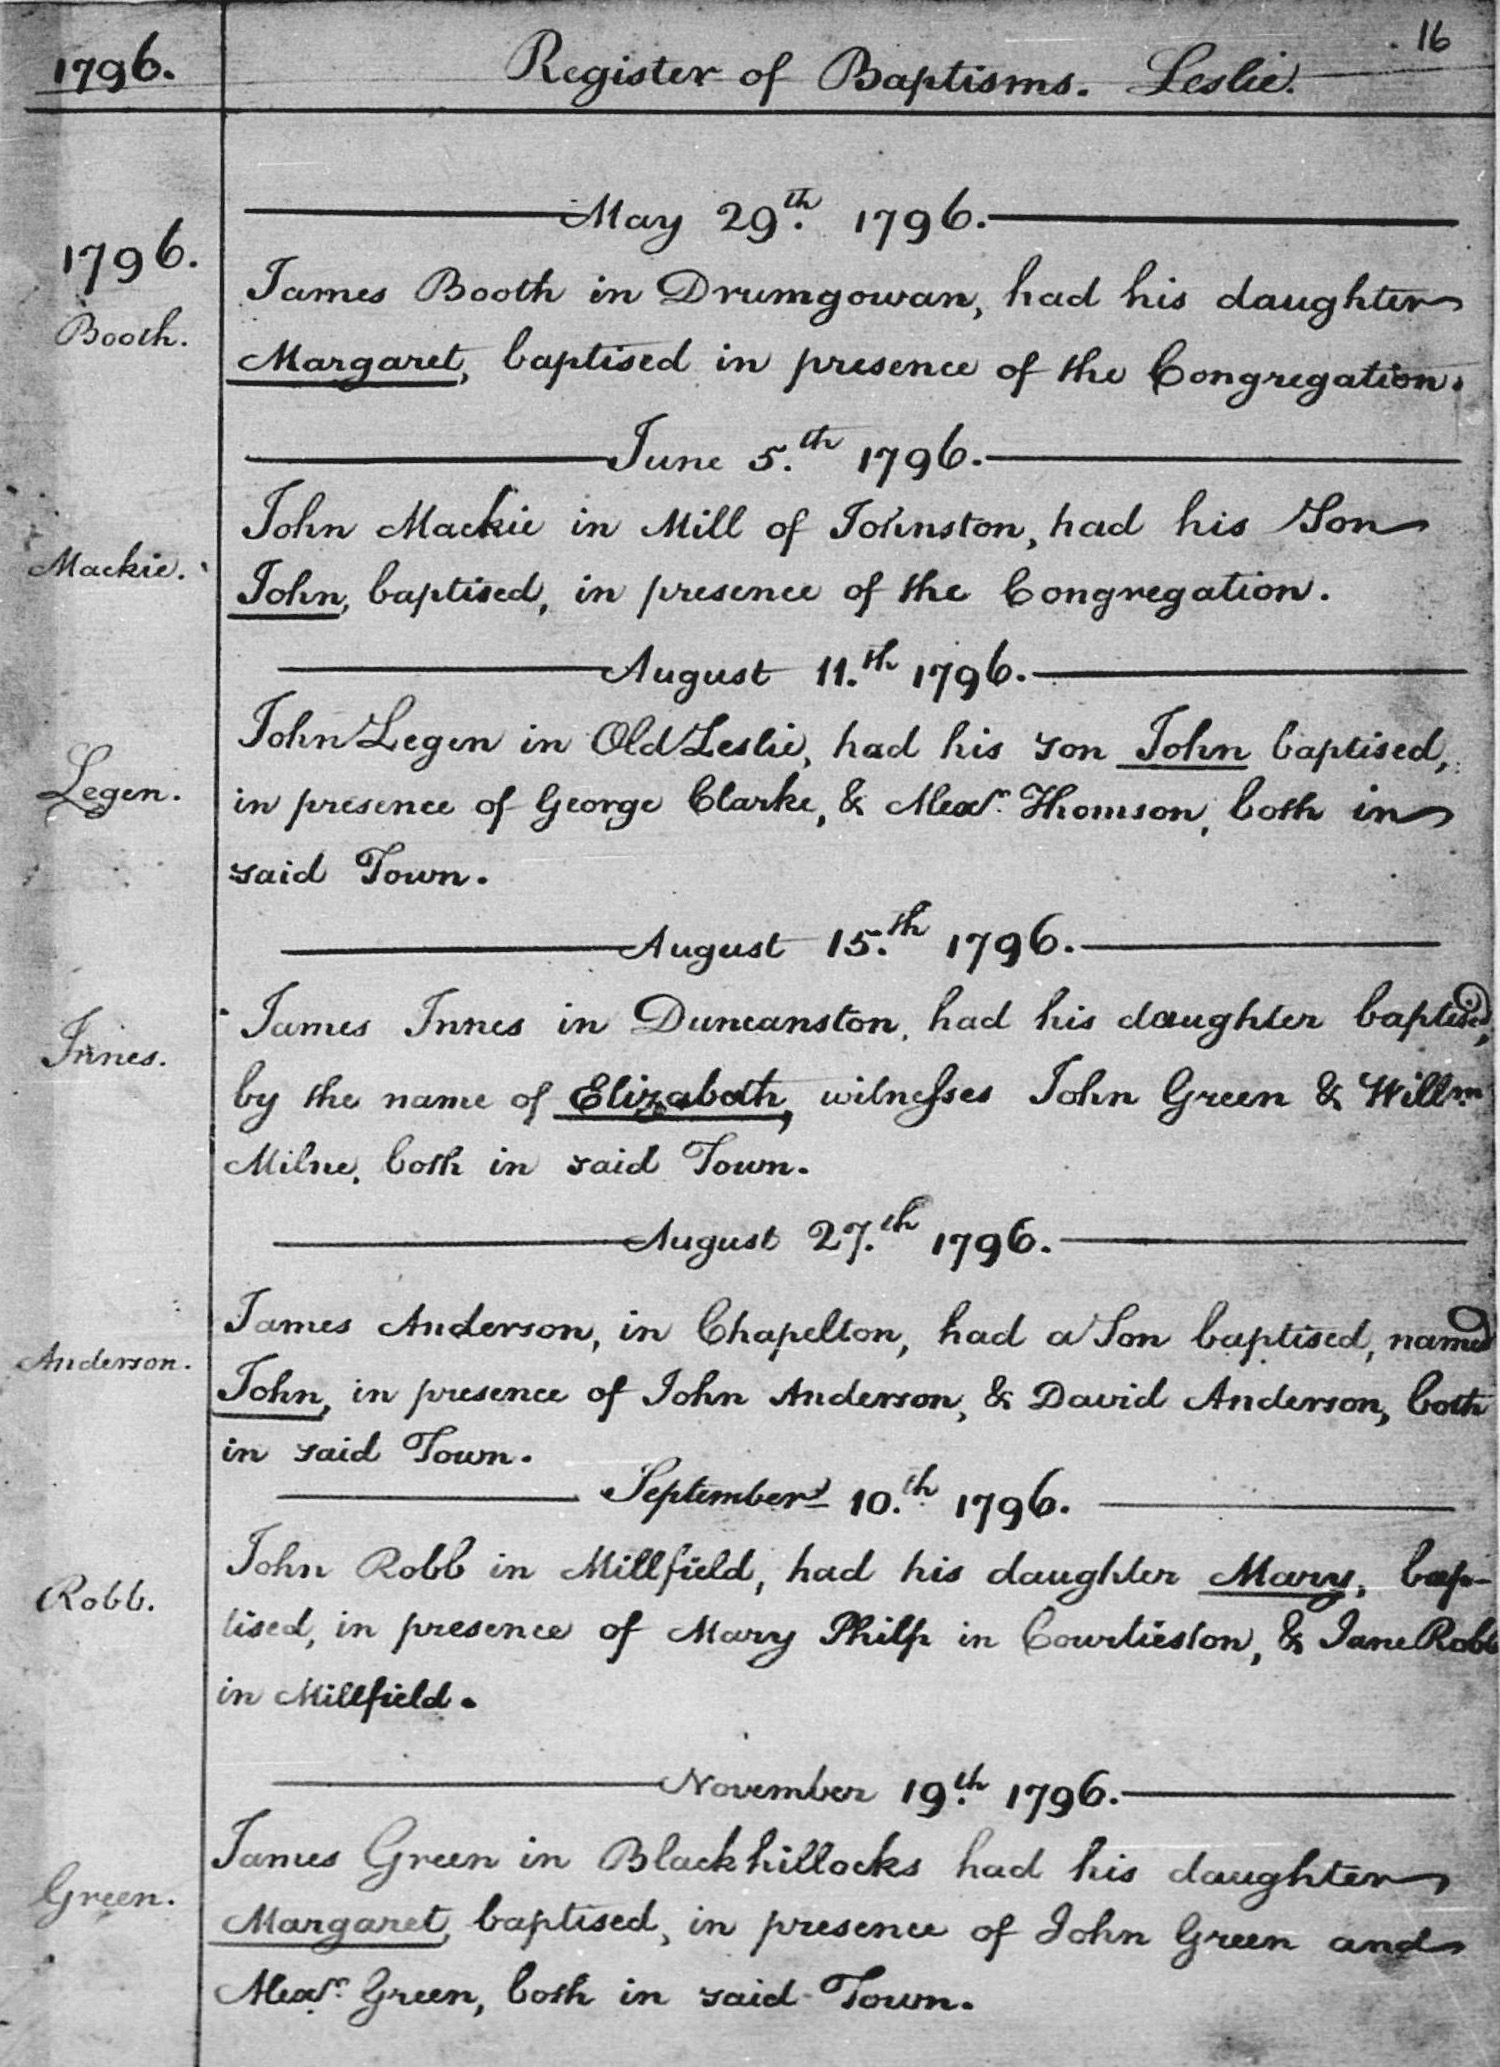 16
1796. Register of Baptisms. Leslie.
May 29th. 1796.
1796.
Booth.
James Booth in Drumgowan, had his daughter
Margaret, baptised in presence of the Congregation.
June 5.th 1796.
Mackie.
John Mackie in Mill of Johnston, had his Son
John, baptised, in presence of the Congregation.
August 11.th 1796.
Legen.
John Legen in Old Leslie, had his son John baptised,
in presence of George Clarke, & Alexr. Thomson, both in
said Town.
August 15.th 1796.
Innes.
James Innes in Duncanston, had his daughter baptised,
by the name of Elizabeth, witnesses John Green & Willm.
Milne, both in said Town.
August 27.th 1796.
Anderson.
James Anderson, in Chapelton, had a Son baptised, named
John, in presence of John Anderson, & David Anderson, both
in said Town.
September 10.th 1796.
Robb.
John Robb in Millfield, had his daughter Mary, bap-
tised, in presence of Mary Philp in Courtieston, & Jane Robb
in Millfield.
November 19th. 1796.
Green.
James Green in Blackhillocks had his daughter
Margaret, baptised, in presence of John Green and
Alexr. Green, both in said Town.